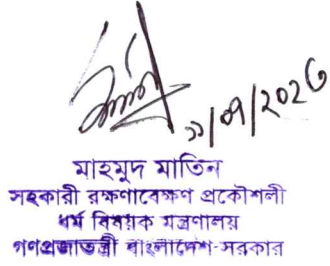 ১১/০৭/২০২৬
মাহমুদ মাতিন
সহকারী রক্ষণাবেক্ষণ প্রকৌশলী
ধর্ম বিষয়ক মন্ত্রণালয়
গণপ্রজাতন্ত্রী বাংলাদেশ সরকার